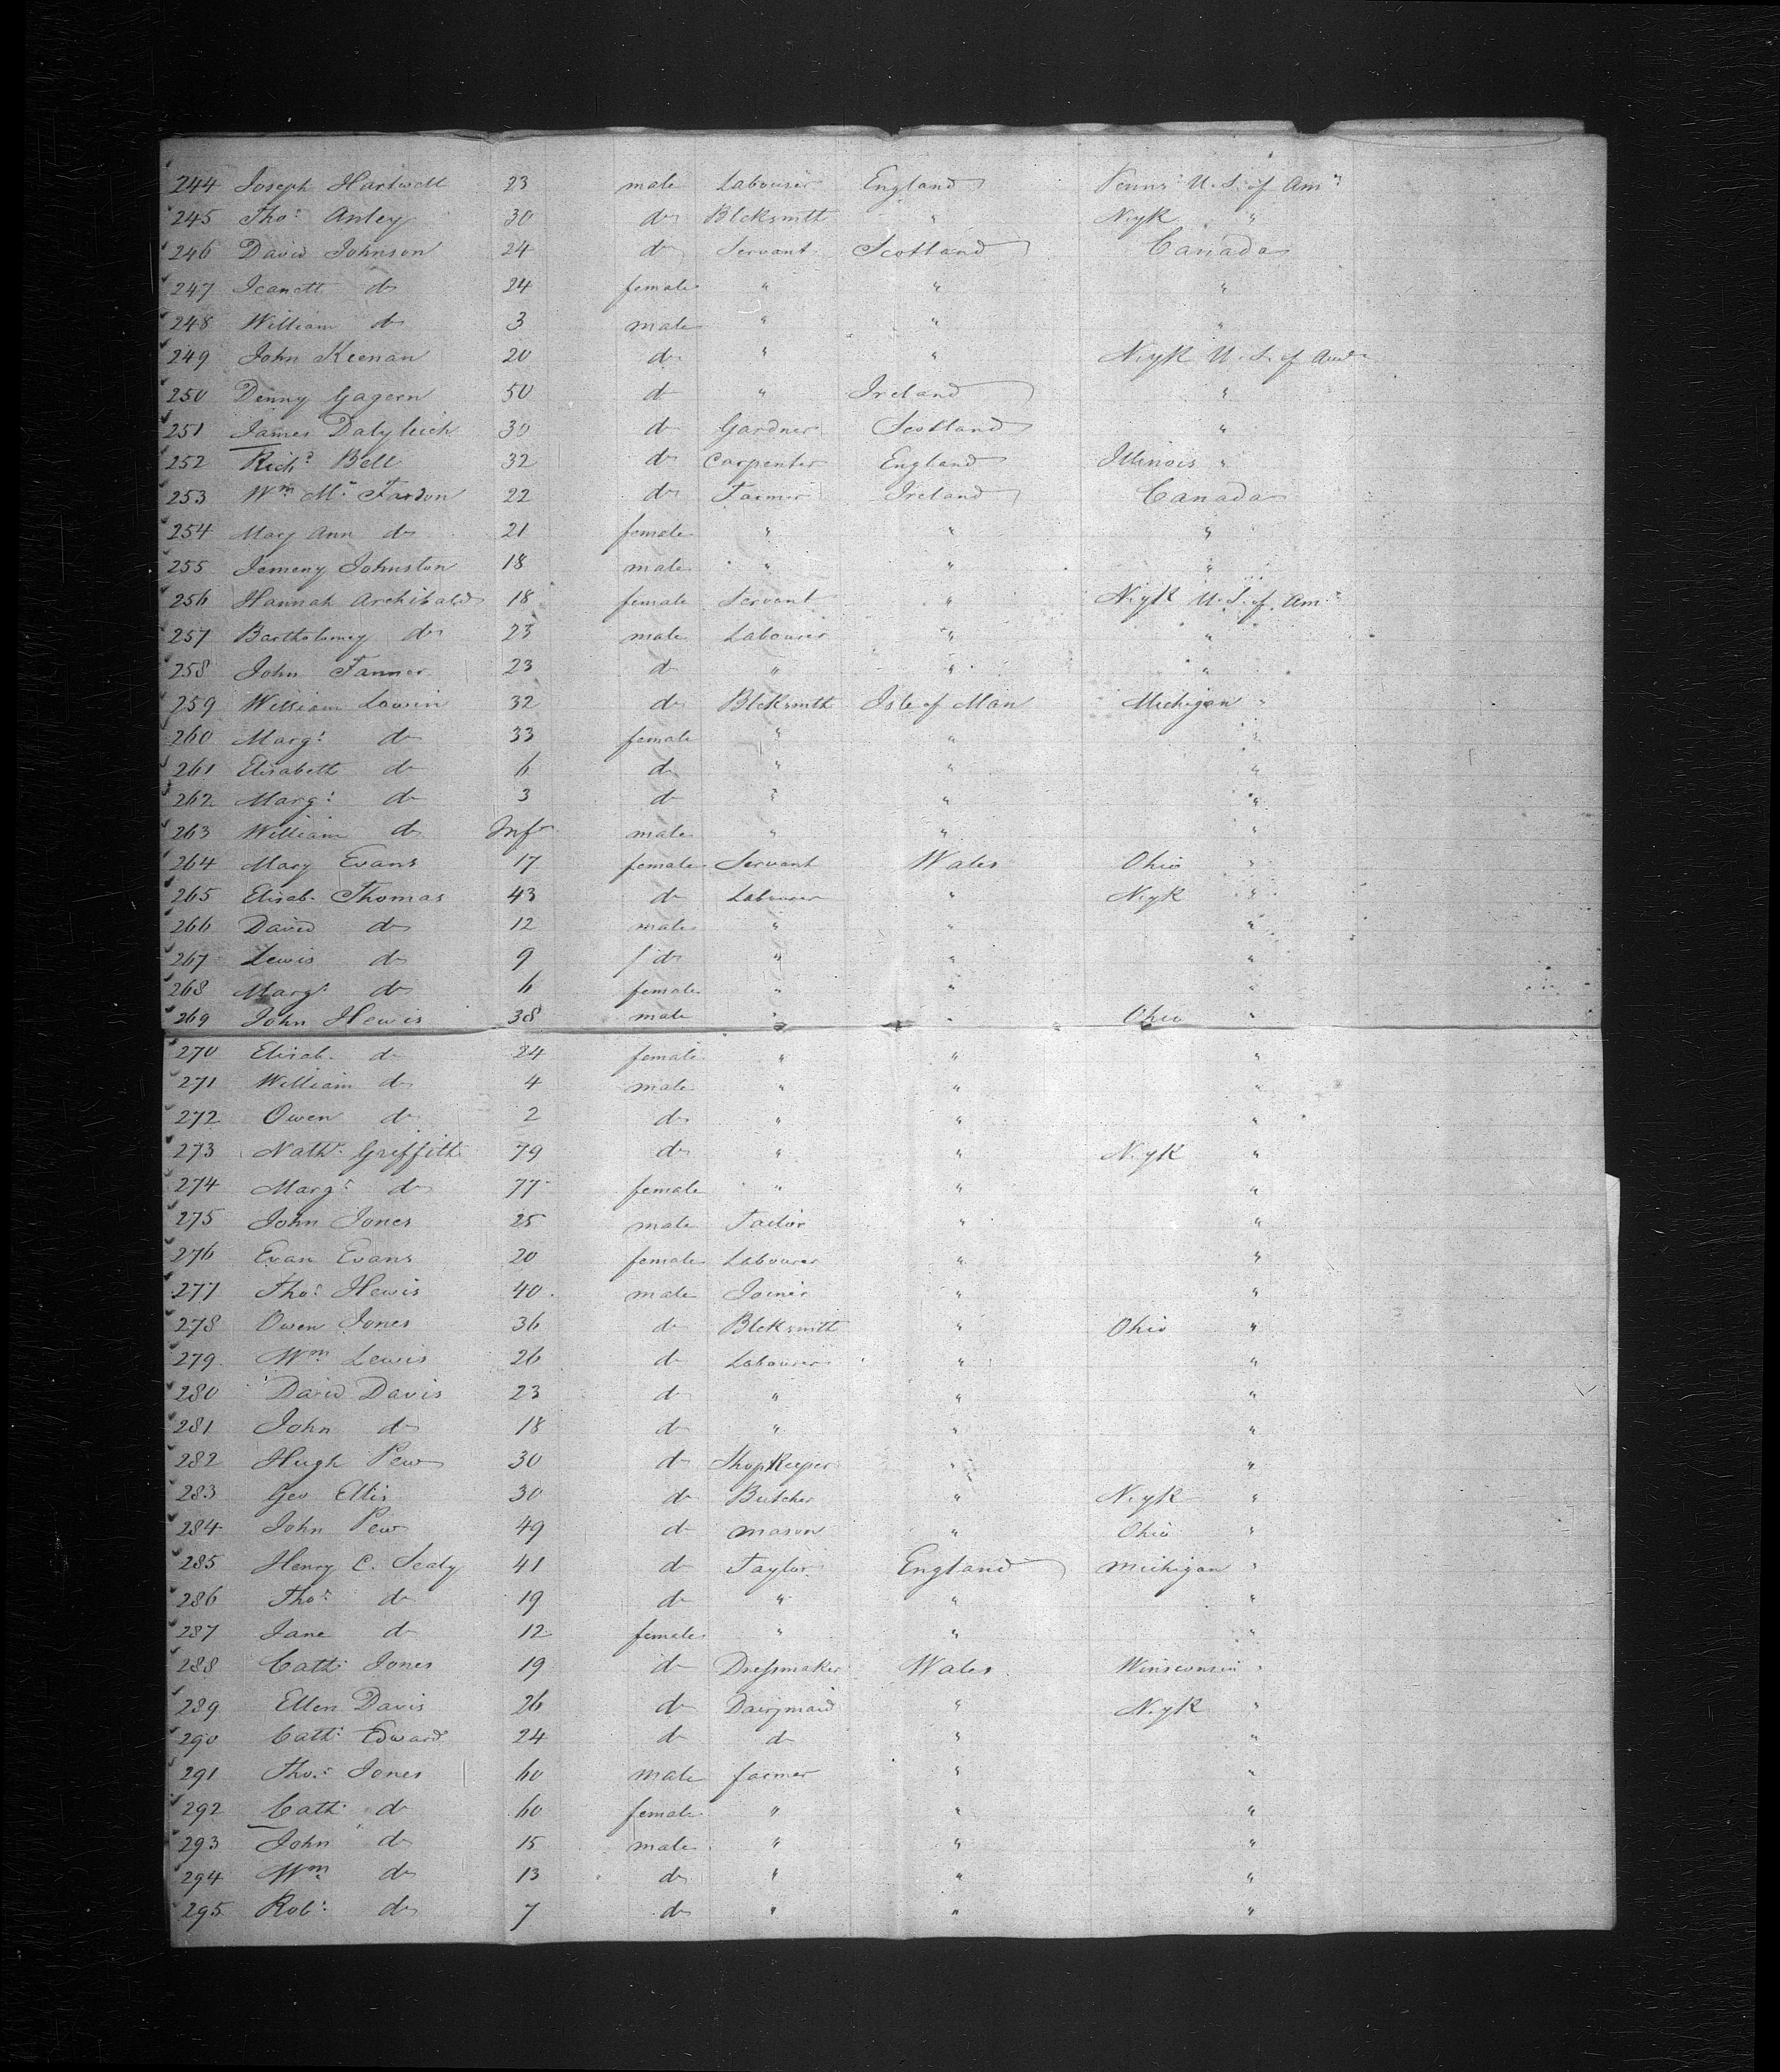 244 Joseph Hartwell 23 male Labourer England Penns. U.S. of Am.
245 Thos. Anley 30 do Blcksmith " N.yk "
246 David Johnson 24 do Servant Scotland Canada
247 Jeanett do 24 female " " "
248 William do 3 male " " "
249 John Keenan 20 do " " N.yk U.S. of Am.
250 Denny Gageen 50 do " Ireland "
251 James Dalyleich 30 do Gardner Scotland "
252 Richd. Bell 32 do Carpenter England Illinois "
253 Wm. Mc. Fardon 22 do Farmer Ireland Canada
254 Mary Ann do 21 female " " "
255 Jemeny Johnston 18 male " " "
256 Hannah Archibald 18 female Servant " N.yk U.S. of Am.
257 Bartholomey do 23 male Labourer " "
258 John Fanner 23 do " " "
259 William Lowin 32 do Blcksmith Isle of Man Michigan "
260 Margt. do 33 female " " "
261 Elisabeth do 6 do " " "
262 Margt. do 3 do " " "
263 William do Inft male " " "
264 Mary Evans 17 female Servant Wales Ohio "
265 Elisab. Thomas 43 do Labourer " N.yk "
266 David do 12 male " " "
267 Lewis do 9 do " " "
268 Margt. do 6 female " " "
269 John Hewis 38 male " " Ohio "
270 Elisab. do 24 female " " "
271 William do 4 male " " "
272 Owen do 2 do " " "
273 Nathl. Griffith 79 do " " N.yk "
274 Margt. do 77 female " " "
275 John Jones 25 male Tailor " "
276 Evan Evans 20 female Labourer " "
277 Thos. Hewis 40 male Joiner " "
278 Owen Jones 36 do Blcksmith " Ohio "
279 Wm. Lewis 26 do Labourer " "
280 David Davis 23 do " " "
281 John do 18 do " " "
282 Hugh Pew 30 do Shopkeeper " "
283 Geo Ellis 30 do Butcher " N.yk "
284 John Pew 49 do mason " Ohio "
285 Henry C. Sealy 41 do Taylor England Michigan "
286 Thos. do 19 do " " "
287 Jane do 12 female " " "
288 Cath. Jones 19 do Dressmaker Wales Winsconsin "
289 Ellen Davis 26 do Dairymaid " N.yk "
290 Cath. Edward 24 do do " "
291 Thos. Jones 60 male farmer " "
292 Cath. do 60 female " " "
293 John do 15 male " " "
294 Wm. do 13 do " " "
295 Robt. do 7 do " " "